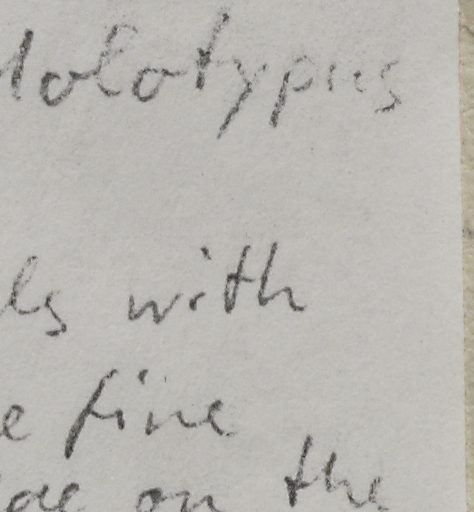 Holotypus
ls with
e fine
on the